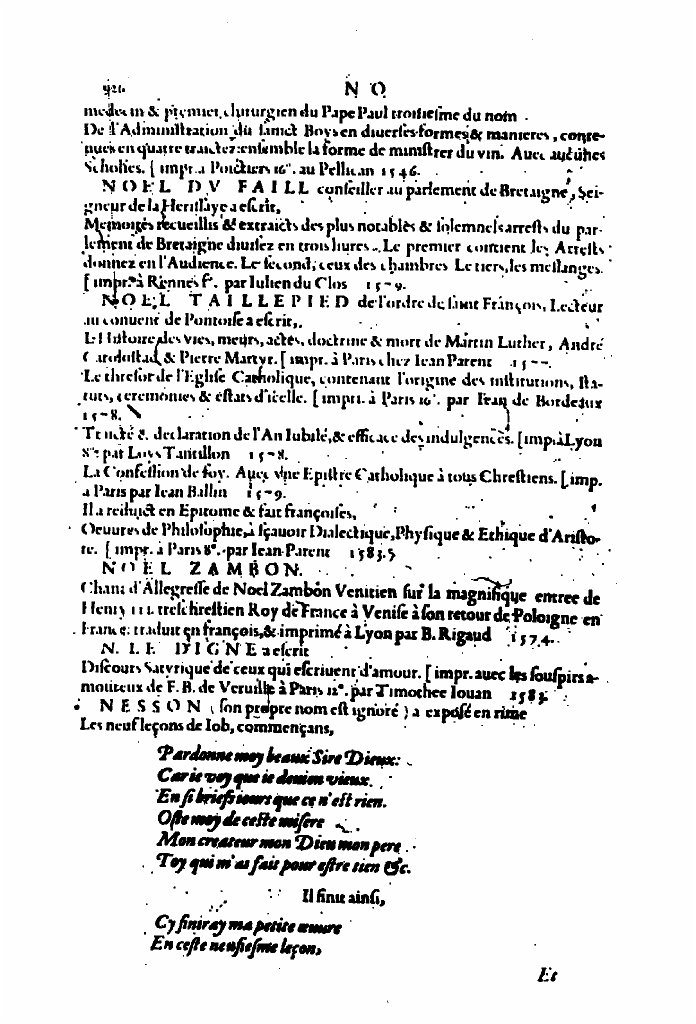 926 N O
medecin & premier chirurgien du Pape Paul troisiesme du nom
De l'Administration du sainct Boys en diuerses formes & manieres, conte-
nues en quatre traictez: ensemble la forme de ministrer du vin. Auec aucunes
Scholies. [impr. a Poictiers 16°. au Pellican 1546.
NOEL DV FAILL conseiller au parlement de Bretaigne, Sei-
gneur de la Herissaye a escrit,
Memoires recueillis & extraicts des plus notables & solemnels arrests du par-
lement de Bretaigne diuisez en trois liures. Le premier contient les Arrests
donnez en l'Audience. Le second, ceux des chambres Le tiers, les meslanges.
[impr. à Rennes f°. par Iulien du Clos 1579.
NOEL TAILLEPIED de l'ordre de sainct François, Lecteur
au conuent de Pontoise a escrit,
L'Histoire des vies, meurs, actes, doctrine & mort de Martin Luther, André
Carolostad, & Pierre Martyr. [impr. à Paris chez Iean Parent 1577.
Le thresor de l'Eglise Catholique, contenant l'origine des institutions, sta-
tuts, ceremonies & estats d'icelle. [impri. à Paris 16°. par Iean de Bordeaux
1578.
Traicté & declaration de l'An Iubilé, & efficace des indulgences. [imp. à Lyon
8°. par Loys Tantillon 1578.
La Confession de foy. Auec vne Epistre Catholique à tous Chrestiens. [imp.
a Paris par Iean Ballin 1579.
Il a reduict en Epitome & fait françoises,
Oeuures de Philosophie, à sçauoir Dialectique, Physique & Ethique d'Aristo-
te. [impr. à Paris 8°. par Iean Parent 1583.
NOEL ZAMBON.
Chant d'Allegresse de Noel Zambon Venitien sur la magnifique entree de
Henry III. treschrestien Roy de France à Venise à son retour de Poloigne en
France: traduit en françois, & imprimé à Lyon par B. Rigaud 1574.
N. LE DIGNE a escrit
Discours Satyrique de ceux qui escriuent d'amour. [impr. auec les souspirs a-
moureux de F. B. de Veruille à Paris 12°. par Timothee Iouan 1583.
NESSON (son propre nom est ignoré) a exposé en rime
Les neuf leçons de Iob, commençans,
Pardonne moy beaux Sire Dieux:
Car ie voy que ie deuien vieux
En si briefs iours que ce n'est rien.
Oste moy de ceste misere
Mon createur mon Dieu mon pere
Toy qui m'as fait pour estre tien &c.
Il finit ainsi,
Cy finiray ma petite œuure
En ceste neufiesme leçon,
Et